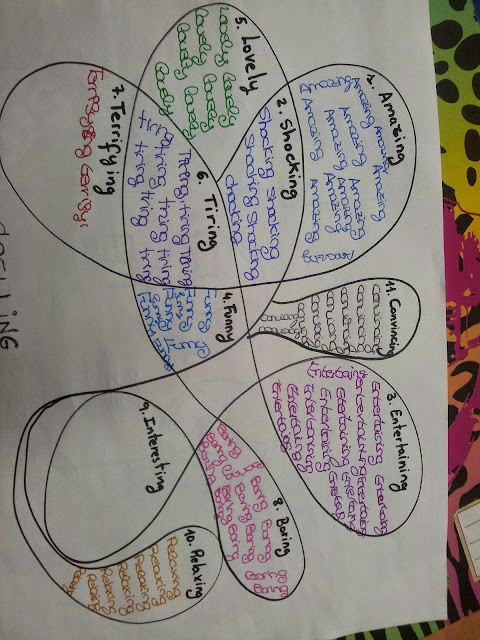 1. Amazing
Amazing Amazing Amazing
Amazing Amazing Amazing
Amazing Amazing Amazing
Amazing Amazing Amazing
11. Convincing
Convincing
Convincing
Convincing
Convincing
Convincing
3. Entertaining
Entertaining Entertaining
Entertaining Entertaining
Entertaining
Entertaining
Entertaining
Entertaining
2. Shocking
Shocking Shocking
Shocking Shocking
5. Lovely
Lovely Lovely
Lovely Lovely
Lovely Lovely
Lovely
6. Tiring
Tiring tiring Tiring
tiring tiring
tiring tiring
4. Funny
Funny
Funny
Funny
8. Boring
Boring Boring Boring
Boring Boring Boring
Boring Boring Boring
7. Terrifying
9. Interesting
10. Relaxing
Relaxing
Relaxing
Relaxing
Relaxing
Relaxing